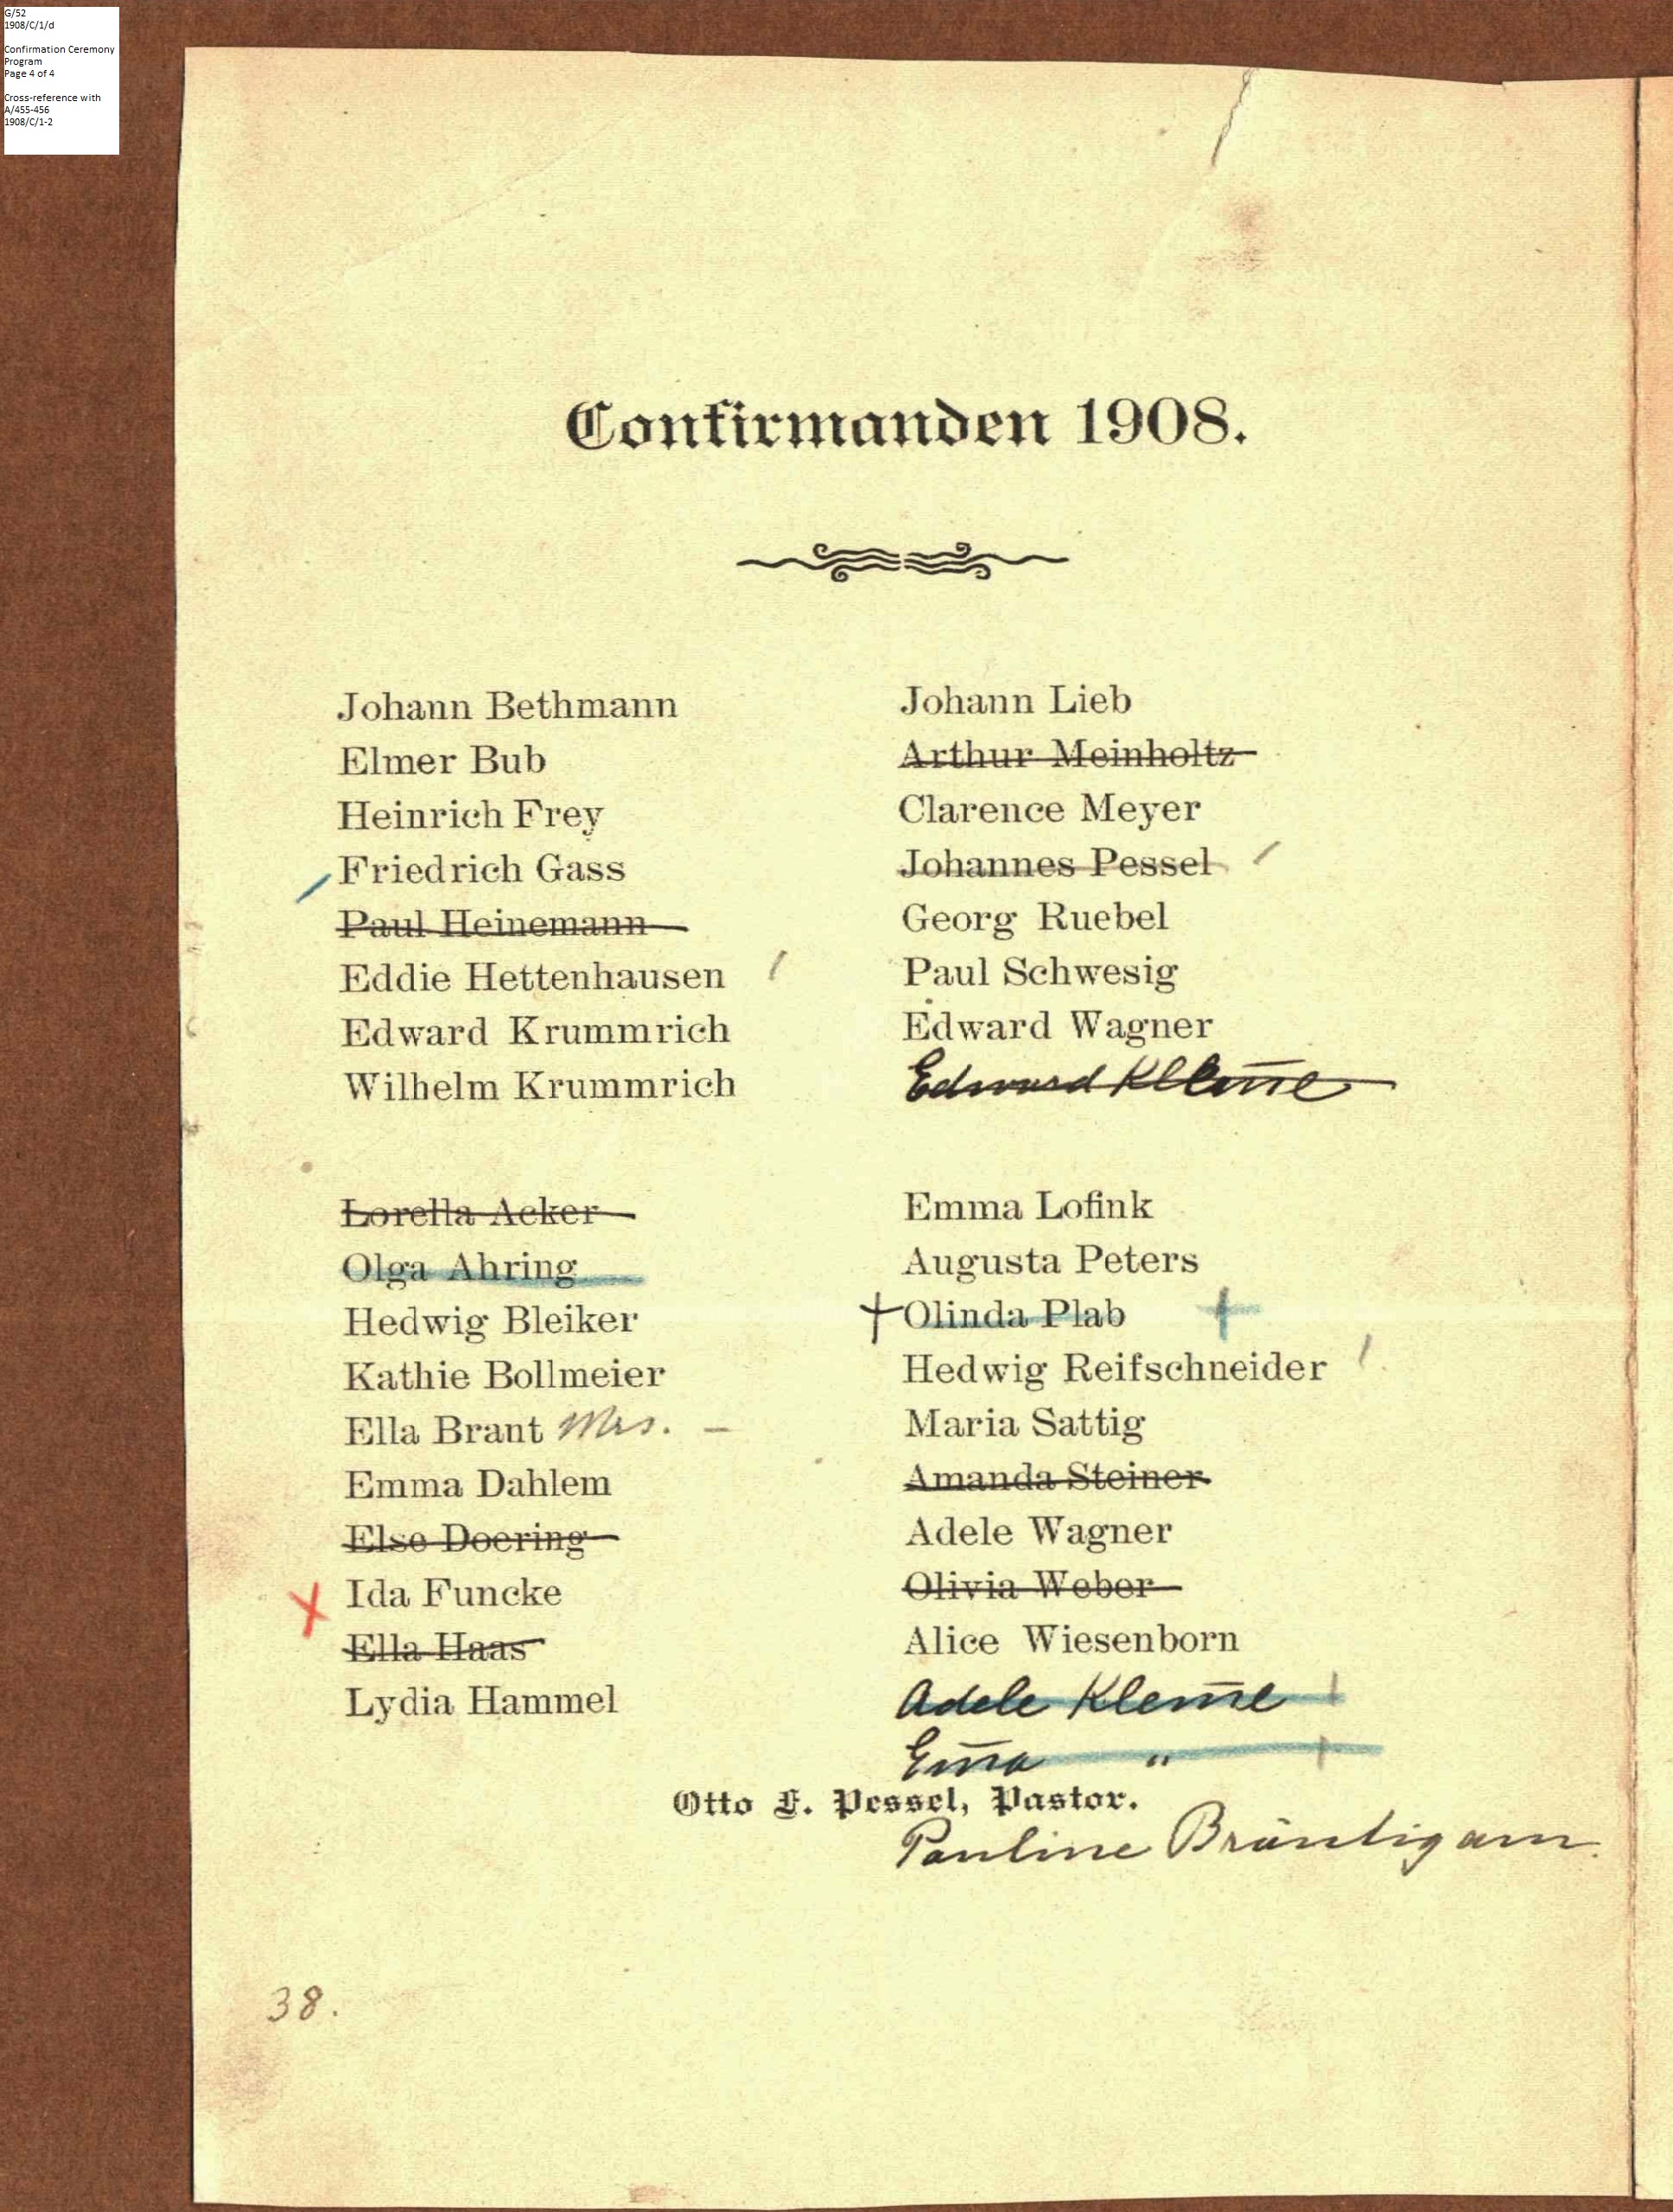 G/52
1908/C/1/d
Confirmation Ceremony
Program
Page 4 of 4
Cross-reference with
A/455-456
1908/C/1-2
Confirmanden 1908.
Johann Bethmann
Elmer Bub
Heinrich Frey
Friedrich Gass
Paul Heinemann
Eddie Hettenhausen
Edward Krummrich
Wilhelm Krummrich
Johann Lieb
Arthur Meinholtz
Clarence Meyer
Johannes Pessel
Georg Ruebel
Paul Schwesig
Edward Wagner
Edward Klem̅e
Lorella Acker
Olga Ahring
Hedwig Bleiker
Kathie Bollmeier
Ella Brant Mrs. –
Emma Dahlem
Else Doering
Ida Funcke
Ella Haas
Lydia Hammel
Emma Lofink
Augusta Peters
Olinda Plab
Hedwig Reifschneider
Maria Sattig
Amanda Steiner
Adele Wagner
Olivia Weber
Alice Wiesenborn
Adele Klem̅e
Em̅a "
Otto F. Pessel, Pastor.
Pauline Bräutigam.
38.